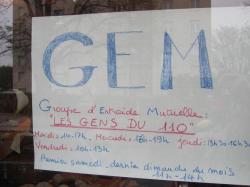 GEM
Groupe d'Entraide Mutuelle:
"LES GENS DU 110"
Mardi: 14-17h, Mercredi: 17h-19h jeudi: 13h30-16h30
Vendredi: 10h-13h
Premier samedi - dernier dimanche du mois
11h-14h